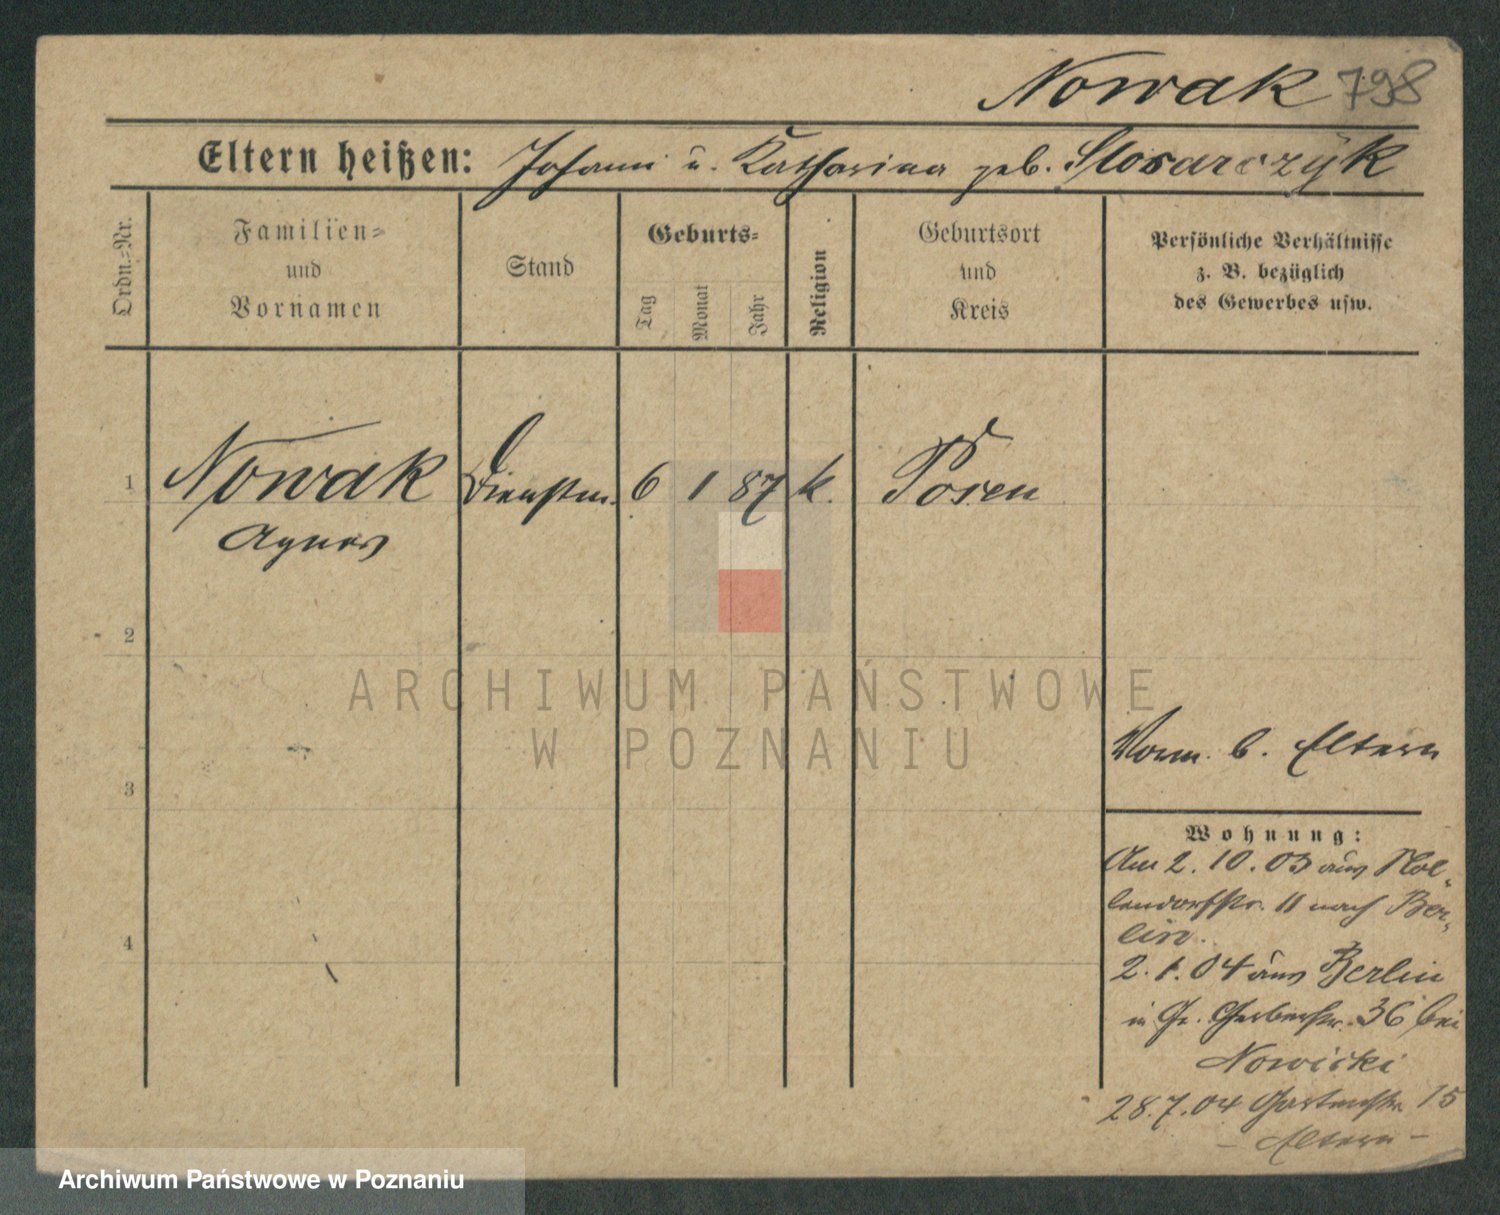 Nowak 798
Eltern heißen: Johann u. Katharina geb. Slosarczyk
Ordn.-Nr.
Familien-
und
Vornamen
Stand
Geburts-
Tag
Monat
Jahr
Religion
Geburtsort
und
Kreis
Persönliche Verhältnisse
z. B. bezüglich
des Gewerbes usw.
1 Nowak Dienstm. 6 1 87 k. Posen
Agnes
2
ARCHIWUM PAŃSTWOWE
W POZNANIU
Vorm. b. Eltern
3
Wohnung:
Am 2. 10. 03 aus Nol-
lendorfstr. 11 nach Ber-
lin.
4
2. 1. 04 aus Berlin
in Gr. Gerberstr. 36 bei
Nowicki
28.7.04 Gartenstr. 15
- Eltern -
Archiwum Państwowe w Poznaniu